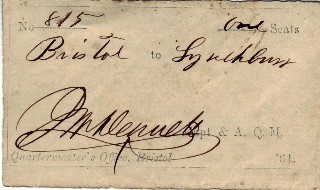 No 815 One Seats
Bristol to Lynchburg
Capt. & A. Q. M.
Quartermaster's Office, Bristol 64.